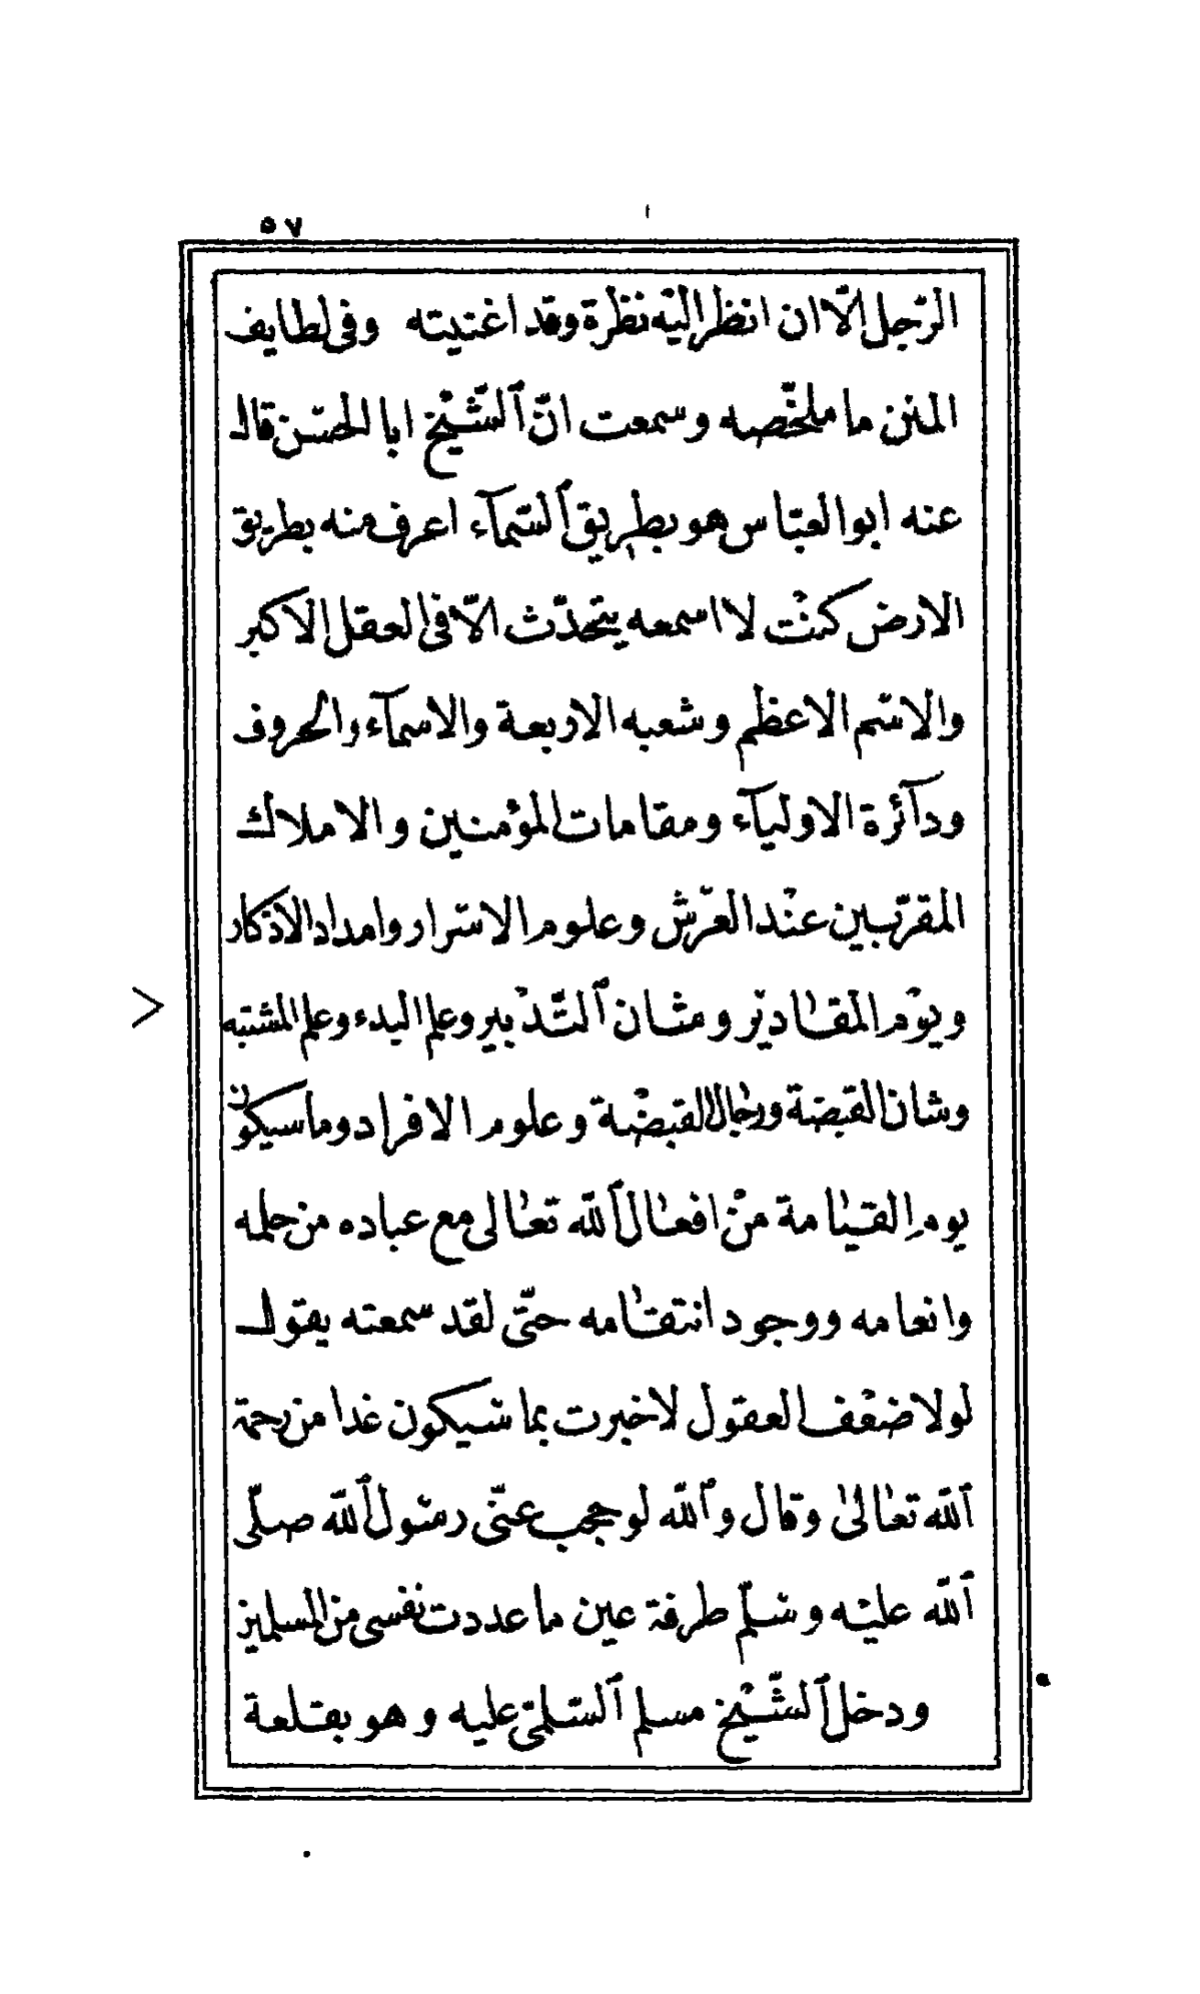 ٥٧
الرّجل الّا ان انظر اليْه نظرة وقد اغنيته وفى لطايف
المنن ما ملخّصه وسمعت انّ ٱلشّيْخ ابا الحسن قال
عنه ابوا العبّاس هو بطريق ٱلسّمآء اعرف منه بطريق
الارض كنْت لا اسمعه يتحدّث الّا فى العقل الاكبر
والاسْم الاعظم وشعبه الاربعة والاسمآء والحروف
ودآئرة الاوليآء ومقامات المؤمنين والاملاك
المقرّبين عنْد العرْش وعلوم الاسْرار وامداد الاذكار
ويوْم المقادير ومثان ٱلتّدْبير وعلم البدء وعلم المشتبه
وشان القبضة ورجال القبضْة وعلوم الافراد وما سيكون
يوم القيامة منْ افعال ٱللّه تعالى مع عباده من حلمه
وانعامه ووجود انتقامه حتّى لقد سمعته يقول
لولا ضعْف العقول لاخبرت بما سيكون غدا من رحمة
ٱللّه تعالىٰ وقال وٱللّه لو حجب عنّى رسْول ٱللّه صلّى
ٱللّه عليْه وسلّم طرفة عين ما عددت نفسى من المسلمين
ودخل ٱلشّيْخ مسلم ٱلسّلمىّ عليه وهو بقلعة